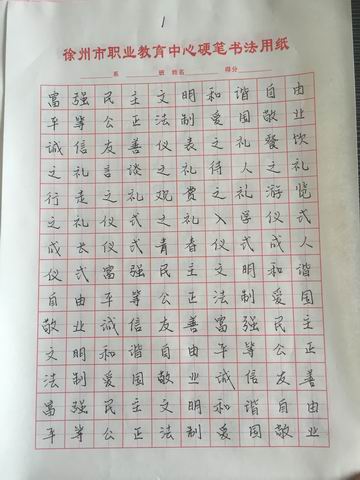 1
徐州市职业教育中心硬笔书法用纸
系 班 姓名 得分
富强民主文明和谐自由
平等公正法制爱国敬业
诚信友善仪表之礼餐饮
之礼言谈之礼待人之礼
行走之礼观赛之礼游览
之礼仪式之礼入学仪式
成长仪式青春仪式成人
仪式富强民主文明和谐
自由平等公正法制爱国
敬业诚信友善富强民主
文明和谐自由平等公正
法制爱国敬业诚信友善
富强民主文明和谐自由
平等公正法制爱国敬业